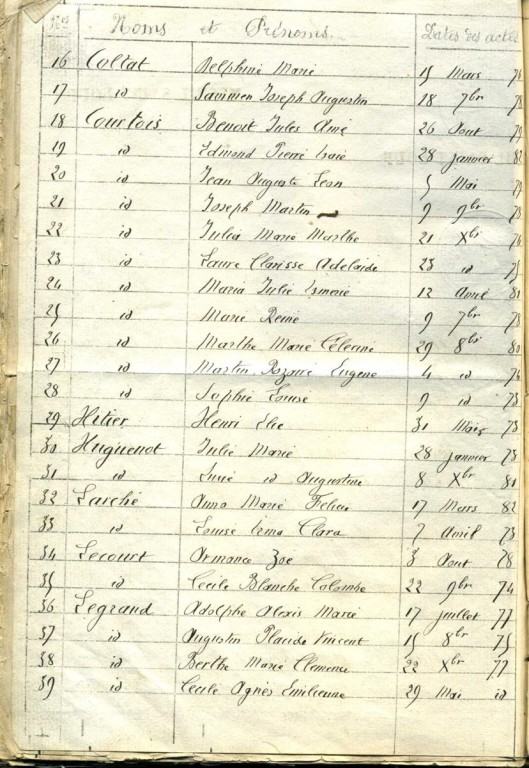 Nos Noms et Prénoms. Dates des actes
16 Collat Delphine Marie 15 Mars
17 id Savinien Joseph Augustin 18 7bre
18 Courtois Benoit Jules Aimé 26 Aout
19 id Edmond Pierre 28 janvier 82
20 id Jean Auguste Leon 5 Mai
21 id Joseph Martin 9 9bre
22 id Julia Marie Marthe 21 Xbre
23 id Laure Clarisse Adelaide 23 id 75
24 id Maria Julie Ismerie 12 Avril 81
25 id Marie Reine 9 7bre 78
26 id Marthe Marie Célerine 29 8bre 80
27 id Martin Eugene 4 id 76
28 id Sophie Louise 9 id 73
29 Hélier Henri Elie 31 Mars 73
30 Huguenot Julie Marie 28 janvier 78
31 id Lucie id Augustine 8 Xbre 81
32 Larché Anna Marie Felicie 17 Mars 82
33 id Louise Irma Clara 7 Avril 73
34 Lecourt Armance Zoe 3 Aout 78
35 id Cecile Blanche Colombe 22 9bre 74
36 Legraud Adolphe Alexis Marie 17 juillet 77
37 id Augustin Claude Vincent 15 8bre 75
38 id Berthe Marie Clemence 22 Xbre 77
39 id Cecile Agnès Emilienne 29 Mai id